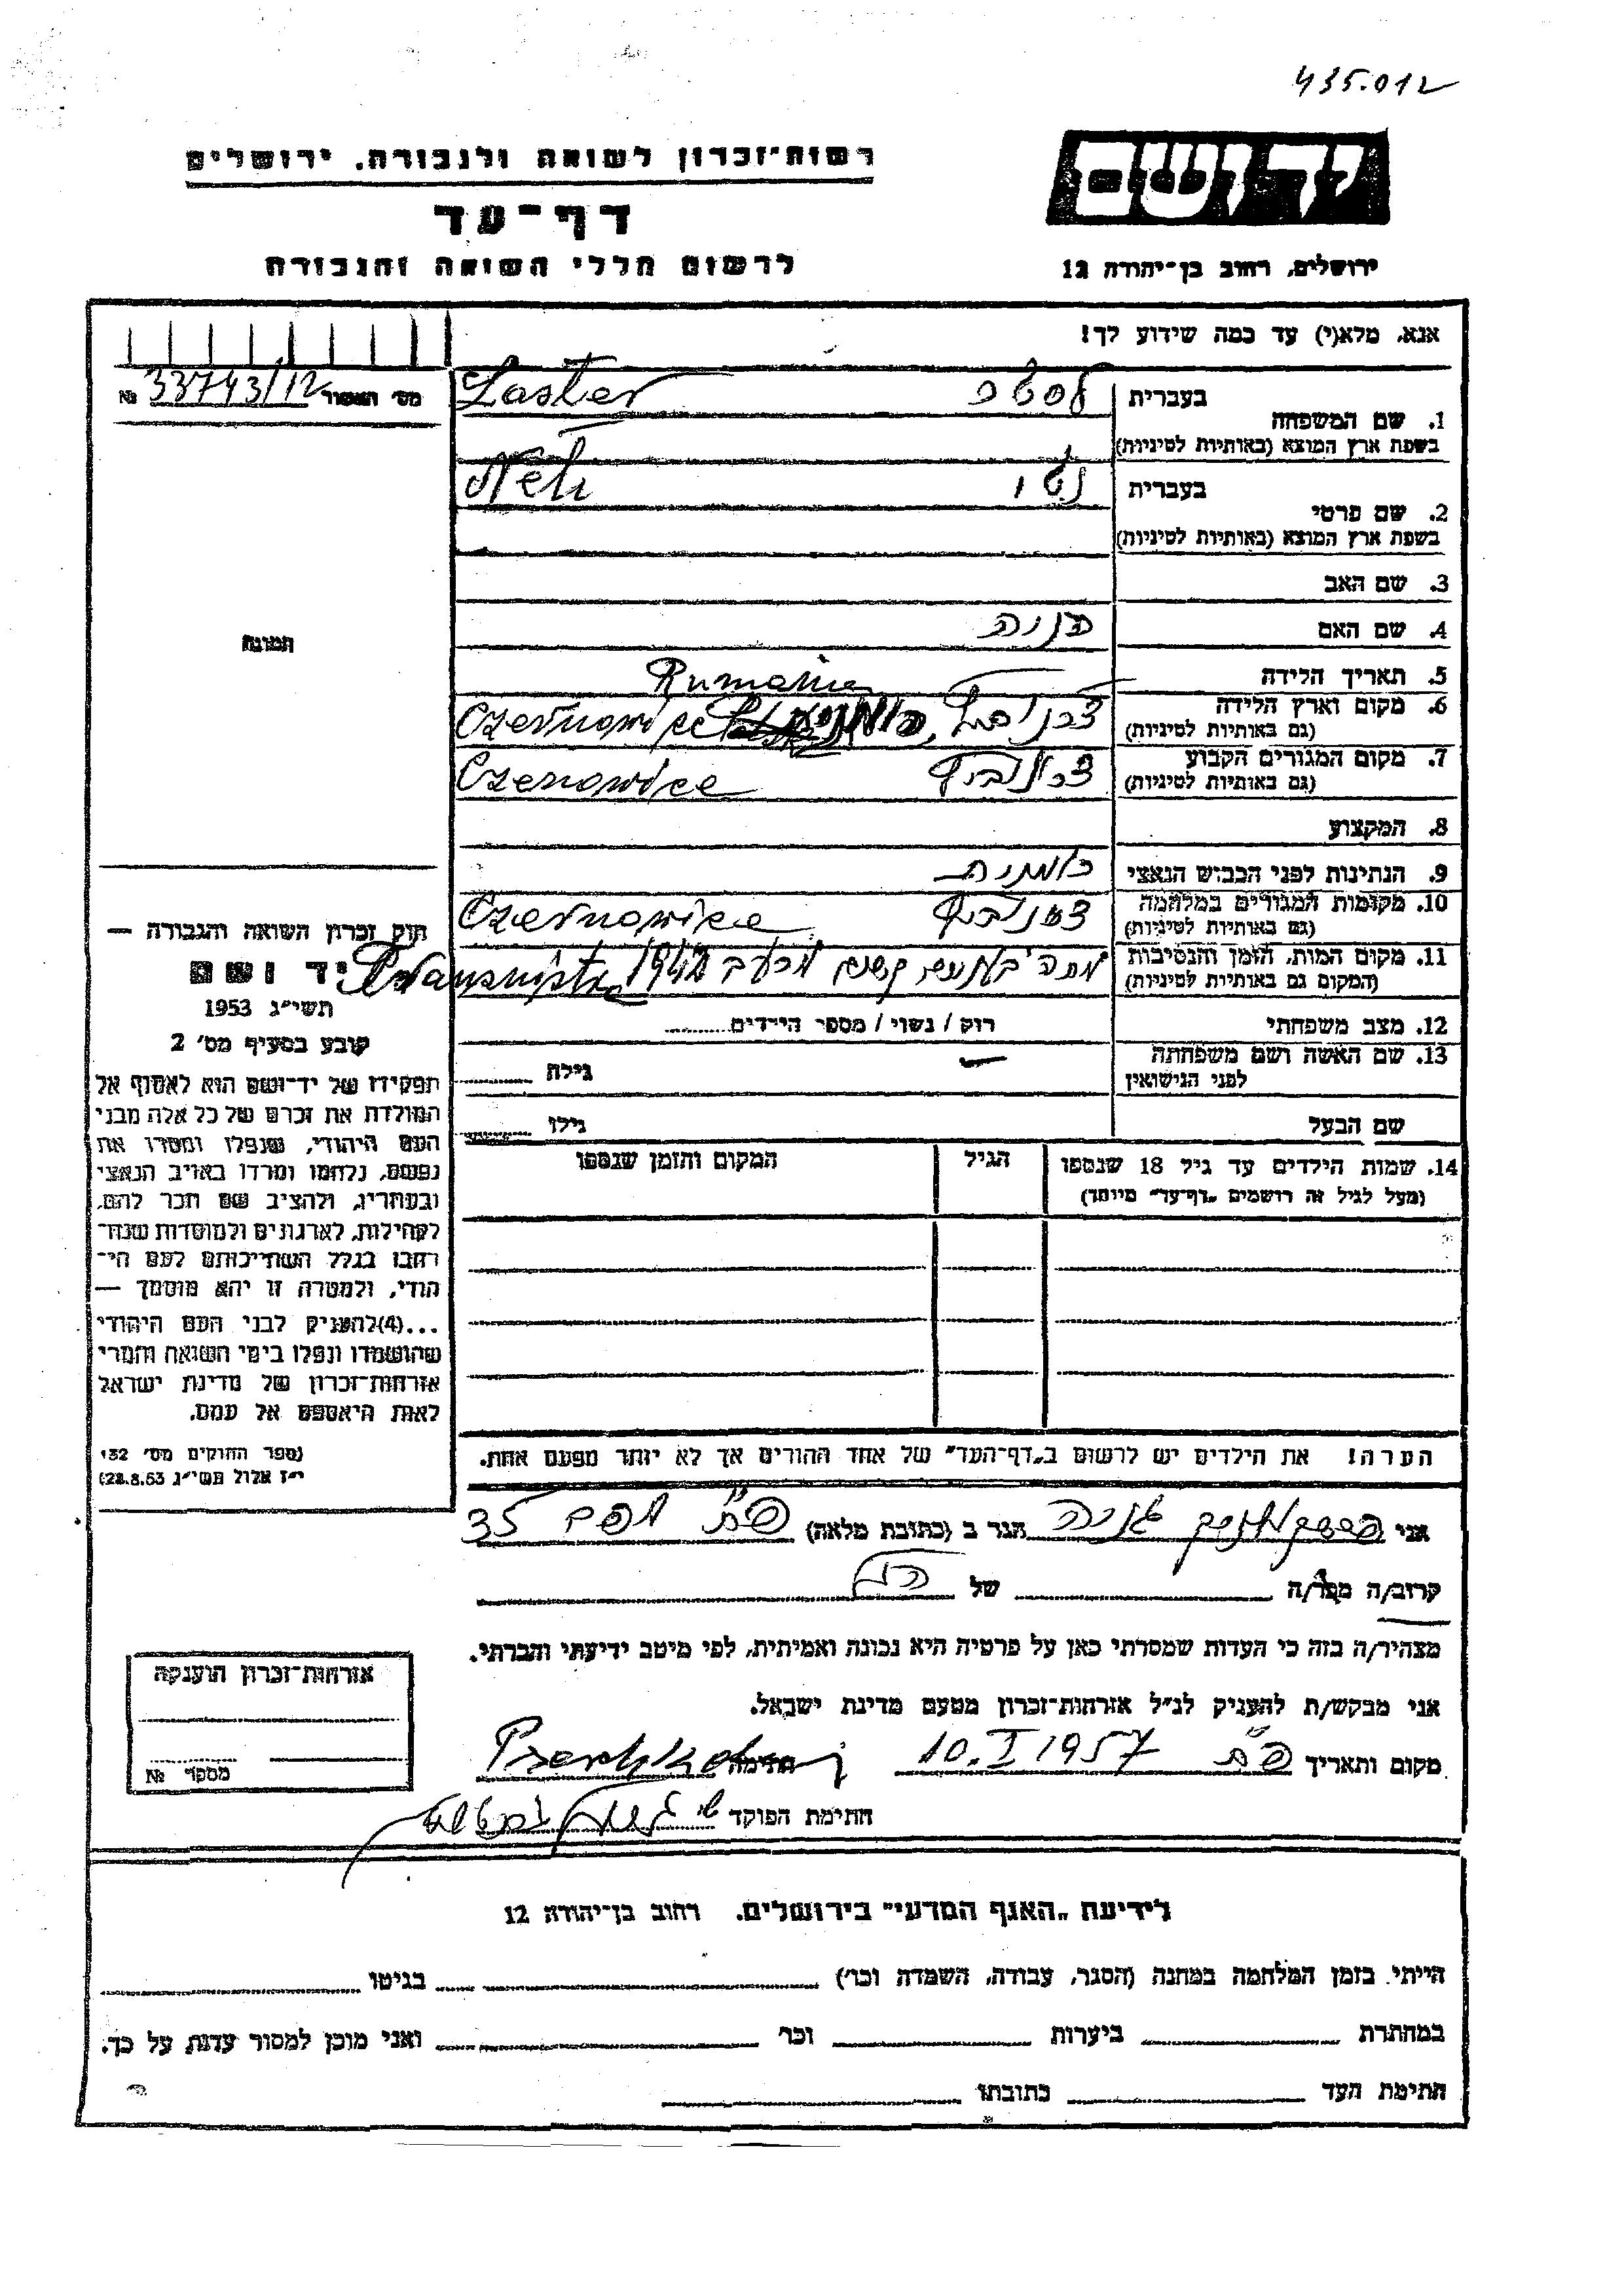 435.012
רשות־זכרון לשואה ולגבורה, ירושלים
יד ושם
דף־עד
לרשום חללי השואה והגבורה
ירושלים, רחוב בן־יהודה 12
אנא, מלא(י) עד כמה שידוע לך!
מס׳ האסור 33743/12 №
בעברית לסטר Laster
1. שם המשפחה
בשפת ארץ המוצא (באותיות לטיניות)
בעברית נטי Neti
2. שם פרטי
בשפת ארץ המוצא (באותיות לטיניות)
3. שם האב
4. שם האם
תמונה
5. תאריך הלידה
Rumania
6. מקום וארץ הלידה Czernowice
(גם באותיות לטיניות)
7. מקום המגורים הקבוע Czenowice
(גם באותיות לטיניות)
8. המקצוע
9. הנתינות לפני הכבוש הנאצי רומנית
10. מקומות המגורים במלחמה Czernowice
(גם באותיות לטיניות)
11. מקום המות, הזמן והנסיבות
(המקום גם באותיות לטיניות)
12. מצב משפחתי רוק / נשוי / מספר הילדים
13. שם האשה ושם משפחתה
לפני הנישואין גילה
שם הבעל גילו
14. שמות הילדים עד גיל 18 שנספו הגיל המקום והזמן שנספו
(מעל לגיל זה רושמים „דף־עד״ מיוחד)
חוק זכרון השואה והגבורה —
יד ושם
תשי״ג 1953
קובע בסעיף מס׳ 2
תפקידו של יד־ושם הוא לאסוף אל
המולדת את זכרם של כל אלה מבני
העם היהודי, שנפלו ומסרו את
נפשם, נלחמו ומרדו באויב הנאצי
ובעוזריו, ולהציב שם וזכר להם,
לקהילות, לארגונים ולמוסדות שנח־
רבו בגלל השתייכותם לעם הי־
הודי, ולמטרה זו יהא מוסמך —
...(4)להעניק לבני העם היהודי
שהושמדו ונפלו בימי השואה והמרי
אזרחות־זכרון של מדינת ישראל
לאות היאספם אל עמם.
(ספר החוקים מס׳ 132
י״ז אלול תשי״ג 28.8.53)
הערה! את הילדים יש לרשום ב„דף־העד״ של אחד ההורים אך לא יותר מפעם אחת.
אני הגר ב (כתובת מלאה) פ״ת 35
קרוב/ה מכר/ה של
מצהיר/ה בזה כי העדות שמסרתי כאן על פרטיה היא נכונה ואמיתית, לפי מיטב ידיעתי והכרתי.
אני מבקש/ת להעניק לנ״ל אזרחות־זכרון מטעם מדינת ישראל.
מקום ותאריך פ״ת 10.I 1957 חתימה
חתימת הפוקד
אזרחות־זכרון הוענקה
מספר №
לידיעת „האגף המדעי״ בירושלים, רחוב בן־יהודה 12
הייתי בזמן המלחמה במחנה (הסגר, עבודה, השמדה וכו׳) בגיטו
במחתרת ביערות וכו׳ ואני מוכן למסור עדות על כך.
חתימת העד כתובתו